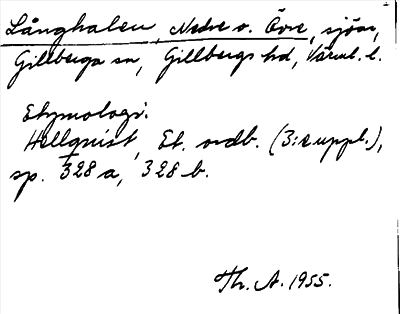 Långhalen, Nedre o. Övre, sjöar,
Gillberga sn, Gillbergs hd, Värml. l.
Etymologi.
Hellquist, Et. ordb. (3:e uppl.),
sp. 328 a, 328 b.
Th. A. 1955.